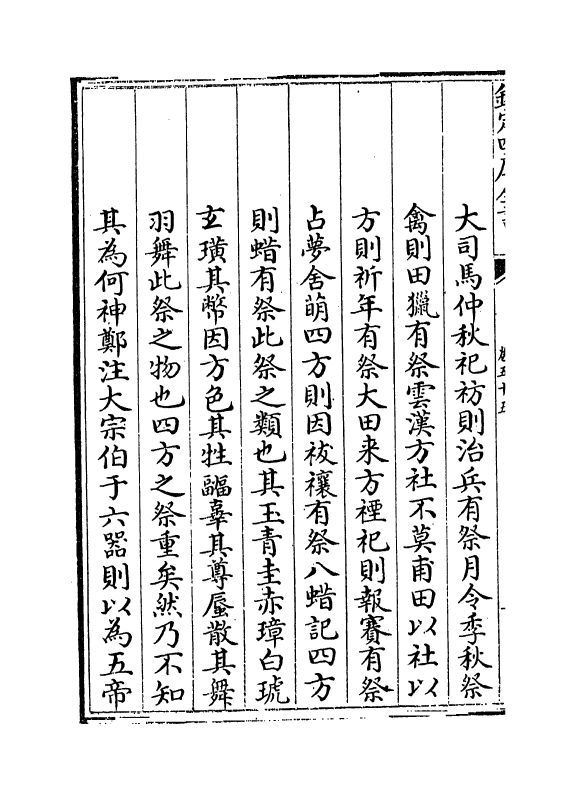 大司馬仲秋祀祊則治兵有祭月令季秋祭
禽則田獵有祭雲漢方社不莫甫田以社以
方則祈年有祭大田来方禋祀則報賽有祭
占夢舍萌四方則因祓禳有祭八蜡記四方
則蜡有祭此祭之類也其玉青圭赤璋白琥
玄璜其幣因方色其牲疈辜其尊蜃散其舞
羽舞此祭之物也四方之祭重矣然乃不知
其為何神鄭注大宗伯于六器則以為五帝